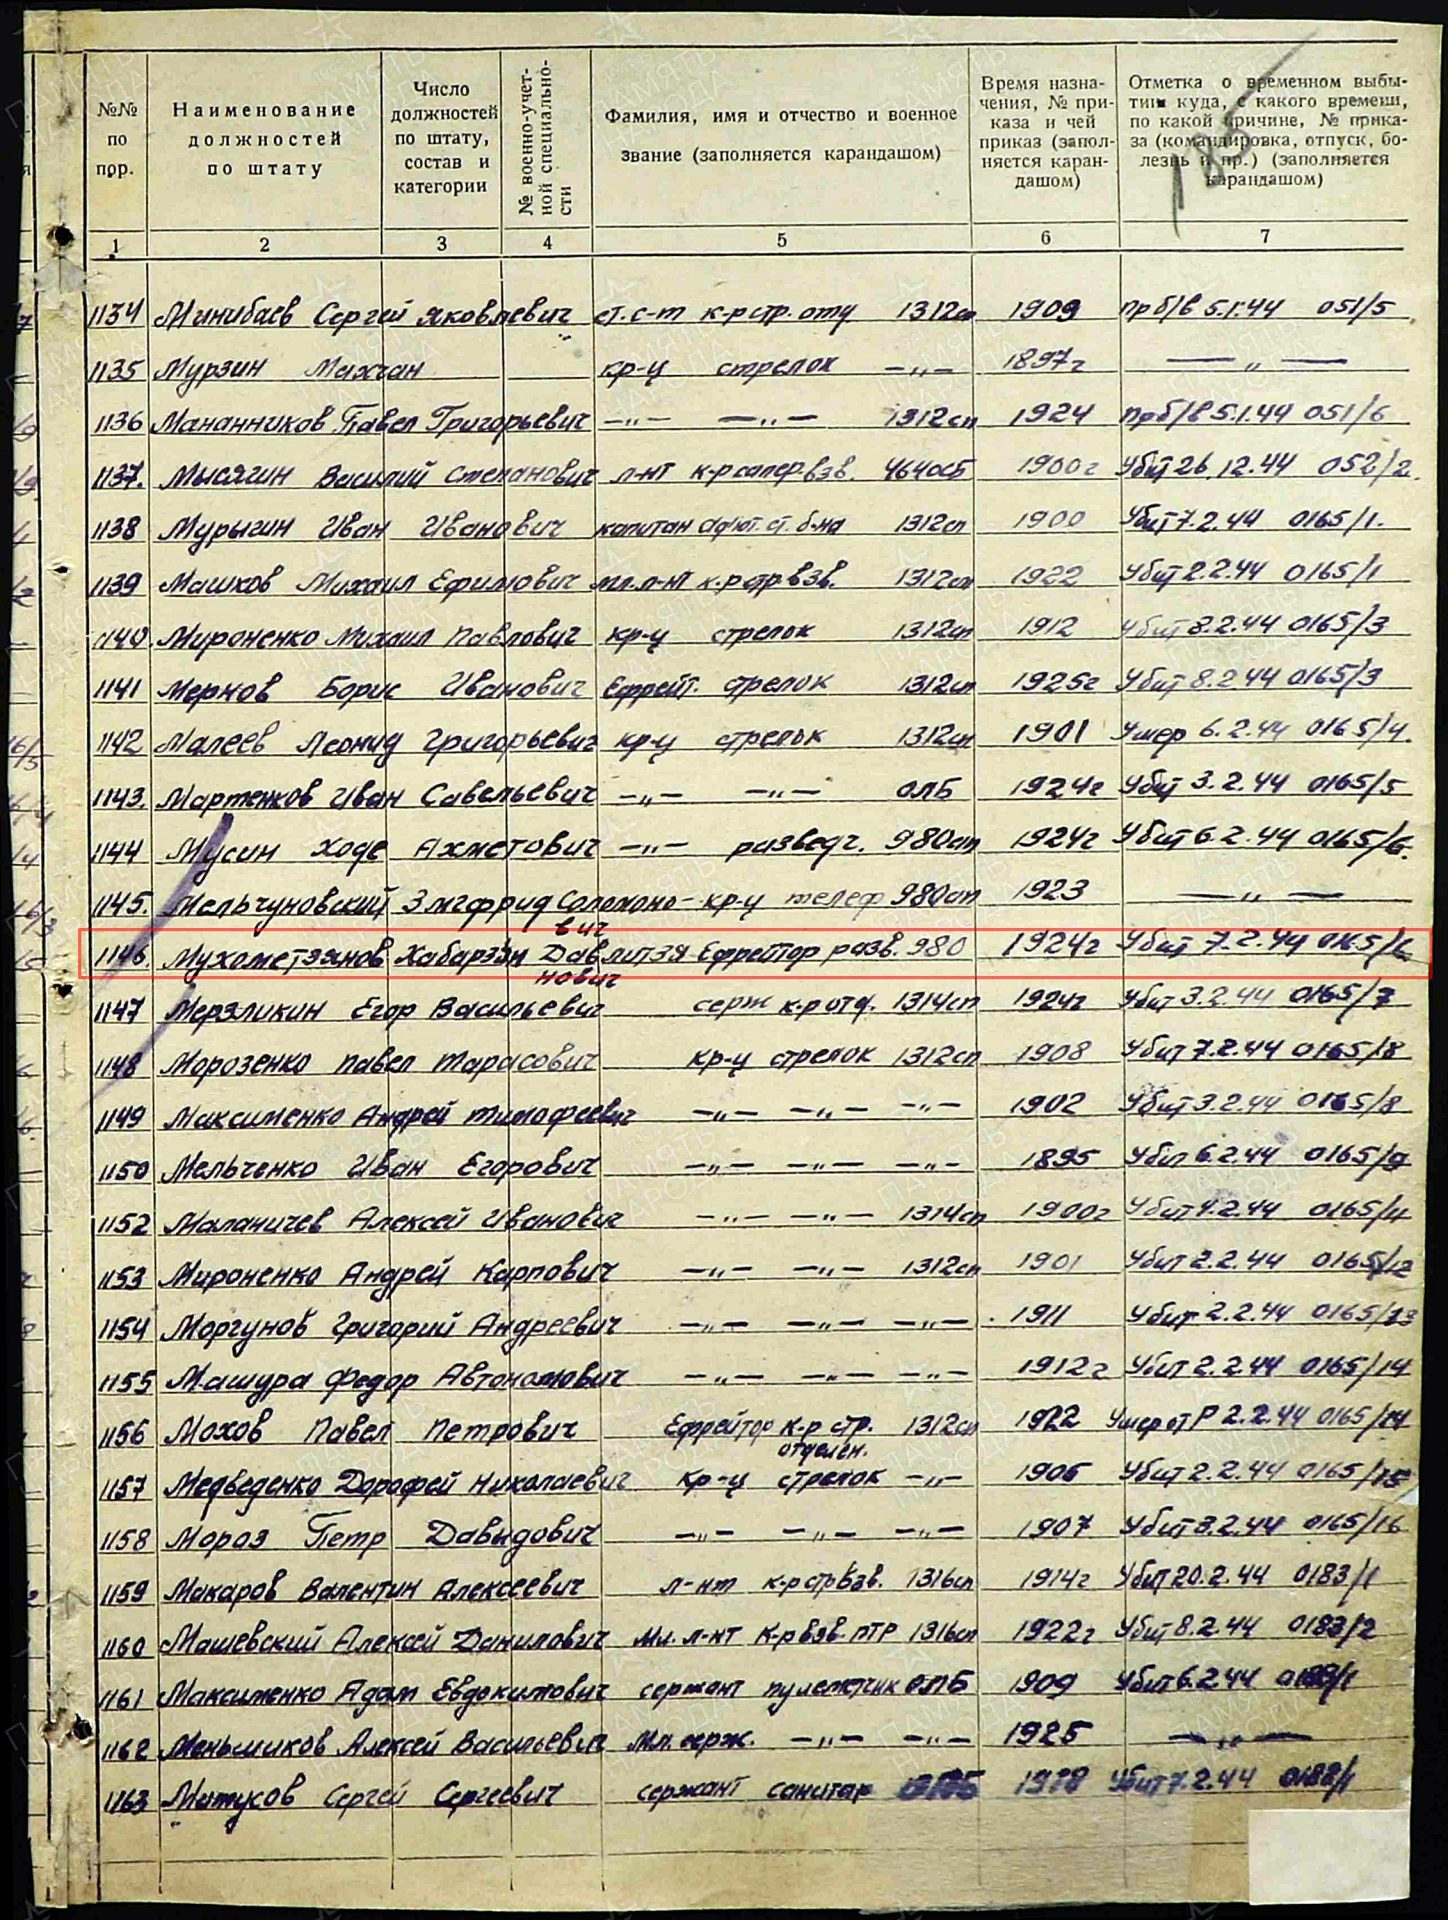 №№ по пор.
Наименование должностей по штату
Число должностей по штату, состав и категории
№ военно-учет-ной специально-сти
Фамилия, имя и отчество и военное звание (заполняется карандашом)
Время назна-чения, № при-каза и чей приказ (запол-няется каран-дашом)
Отметка о временном выбы-тии куда, с какого времени, по какой причине, № прика-за (командировка, отпуск, бо-лезнь и пр.) (заполняется карандашом)
1 2 3 4 5 6 7
1134 Минибаев Сергей Яковлевич ст. с-т к-р стр. отд. 1312сп 1909 Пр б/в 5.1.44 051/5
1135 Мурзин Махчан кр-ц стрелок —„— 1897г —„—
1136 Мананников Павел Григорьевич —„— —„— 1312сп 1924 Пр б/в 5.1.44 051/6
1137. Мысягин Василий Степанович л-нт к-р сапер. взв. 464осб 1900г Убит 26.12.44 052/2.
1138 Мурыгин Иван Иванович капитан адъют. ст. б-на 1312сп 1900 Убит 7.2.44 0165/1.
1139 Машков Михаил Ефимович мл. л-нт к-р стр. взв. 1312сп 1922 Убит 2.2.44 0165/1
1140. Мироненко Михаил Павлович кр-ц стрелок 1312сп 1912 Убит 8.2.44 0165/3
1141 Мернов Борис Иванович Ефрейт. стрелок 1312сп 1925г Убит 8.2.44 0165/3
1142 Малеев Леонид Григорьевич кр-ц стрелок 1312сп 1901 Умер 6.2.44 0165/4.
1143. Мартенков Иван Савельевич —„— —„— ОЛБ 1924г Убит 3.2.44 0165/5
1144 Мусин Ходе Ахметович —„— разведч. 980ап 1924г Убит 6.2.44 0165/6.
1145. Мельчуновский Змгфрид Соломоно-вич кр-ц телеф 980ап 1923 —„—
1146. Мухометзянов Хабарзян Давлитзя-нович Ефрейтор разв. 980 1924г Убит 7.2.44 0165/6
1147 Мерзликин Егор Васильевич серж к-р отд. 1314сп 1924г Убит 3.2.44 0165/7
1148 Морозенко Павел Тарасович кр-ц стрелок 1312сп 1908 Убит 7.2.44 0165/8
1149 Максименко Андрей Тимофеевич —„— —„— —„— 1902 Убит 3.2.44 0165/8
1150 Мельченко Иван Егорович —„— —„— —„— 1895 Убит 6.2.44 0165/9
1152 Маланичев Алексей Иванович —„— —„— 1314сп 1900г Убит 4.2.44 0165/4
1153 Мироненко Андрей Карпович —„— —„— 1312сп 1901 Убит 2.2.44 0165/12
1154 Моргунов Григорий Андреевич —„— —„— —„— 1911 Убит 2.2.44 0165/13
1155 Машура Федор Автономович —„— —„— —„— 1912г Убит 2.2.44 0165/14
1156 Мохов Павел Петрович Ефрейтор к-р стр. отделен. 1312сп 1922 Умер от Р 2.2.44 0165/14
1157 Медведенко Дорофей Николаевич кр-ц стрелок —„— 1906 Убит 2.2.44 0165/15
1158 Мороз Петр Давыдович —„— —„— —„— 1907 Убит 3.2.44 0165/16
1159 Макаров Валентин Алексеевич л-нт к-р стр взв. 1316сп 1914г Убит 20.2.44 0183/1
1160 Машевский Алексей Данилович Мл. л-нт к-р взв ПТР 1316сп 1922г Убит 8.2.44 0183/2
1161 Максименко Адам Евдокимович сержант пулеметчик ОЛБ 1909 Убит 6.2.44
1162 Меньшиков Алексей Васильевич Мл. серж. —„— —„— 1925 —„—
1163 Митусов Сергей Сергеевич сержант санитар Убит 7.2.44